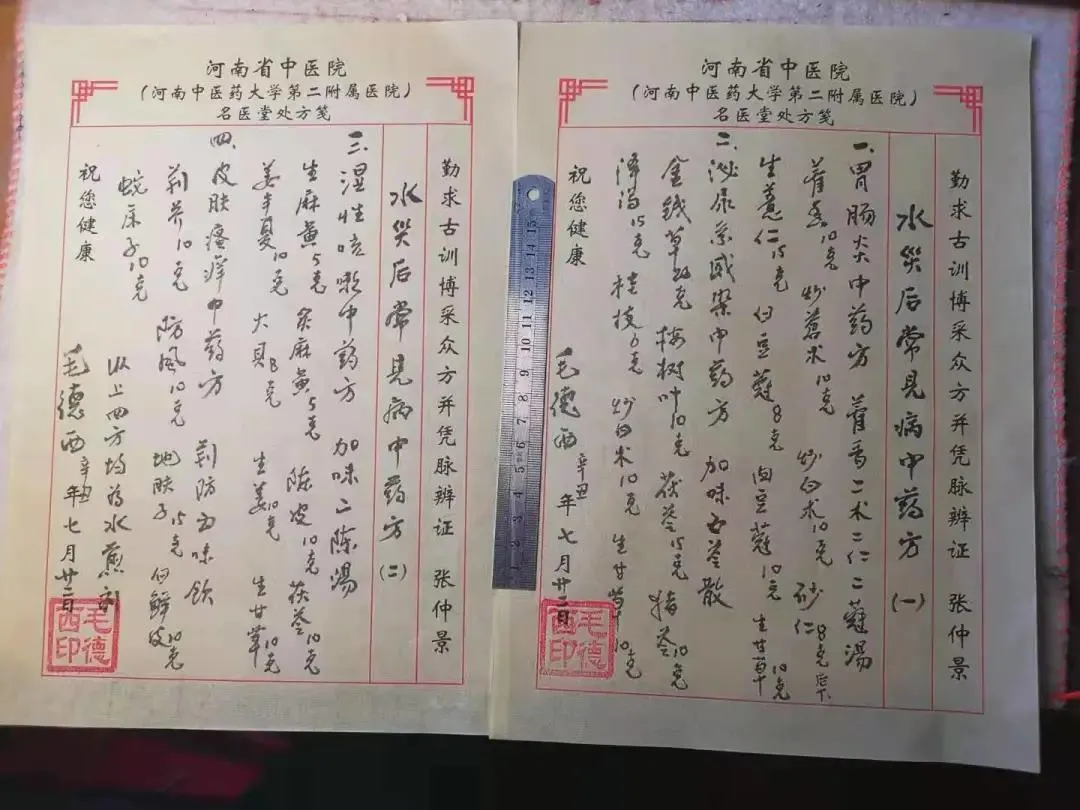 河南省中医院
(河南中医药大学第二附属医院)
名医堂处方笺
勤求古训博采众方并凭脉辨证 张仲景
水災后常見病中药方(一)
一.胃肠炎中药方 藿香二术二仁二蔻湯
藿香10克 炒苍术10克 炒白术10克 砂仁8克后下
生薏仁15克 白豆蔻8克 肉豆蔻10克 生甘草10克
二.泌尿系感染中药方 加味五苓散
金钱草 克 梅树叶10克 茯苓15克 猪苓10克
泽泻15克 桂枝6克 炒白术10克 生甘草10克
毛德西 辛丑年七月廿二日
祝您健康
毛德西印
河南省中医院
(河南中医药大学第二附属医院)
名医堂处方笺
勤求古训博采众方并凭脉辨证 张仲景
水災后常見病中药方(二)
三.湿性咳嗽中药方 加味二陈湯
生麻黄5克 炙麻黄5克 陈皮10克 茯苓10克
姜半夏10克 大貝8克 生姜10克 生甘草10克
四.皮肤瘙痒中药方 荆防五味飲
荆芥10克 防風10克 地肤子15克 白鲜皮10克
蛇床子10克 以上四方均为水煎剂
毛德西 辛丑年七月廿二日
祝您健康
毛德西印
1 2 3 4 5 6 7 8 9 10 11 12 13 14 15